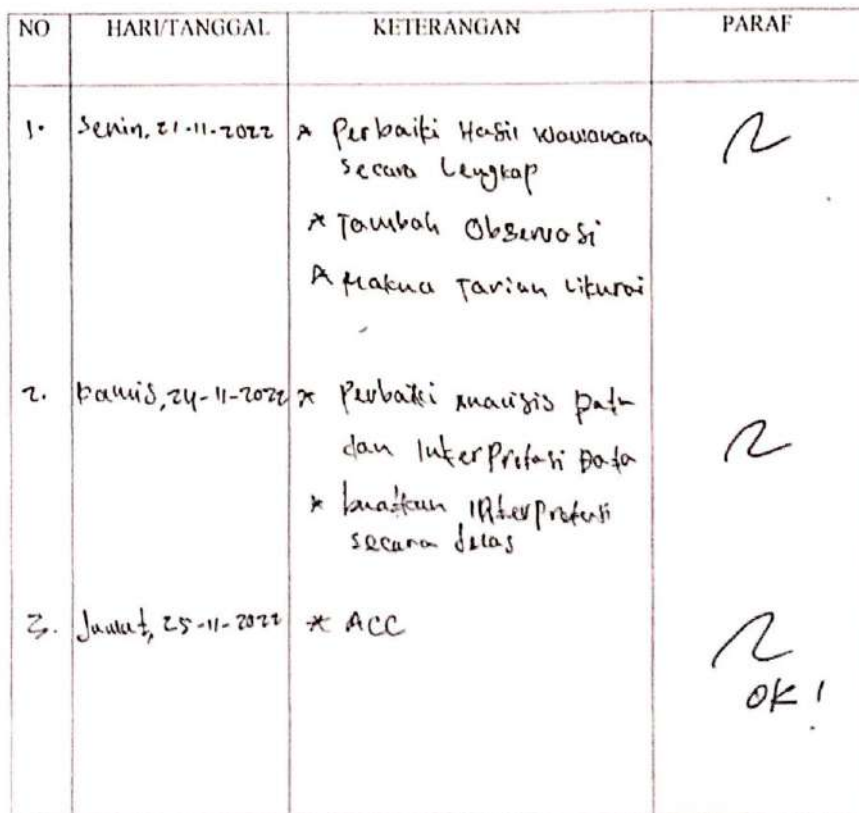 NO HARI/TANGGAL KETERANGAN PARAF
1. Senin, 21-11-2022 * Perbaiki Hasil wawancara
secara Lengkap
* Tambah Observasi
* Makna Tarian Likurai
2. Kamis, 24-11-2022 * Perbaiki Analisis Data
dan Interpretasi Data
* buatkan Interpretasi
secara jelas
3. Jumat, 25-11-2022 * ACC
OK!